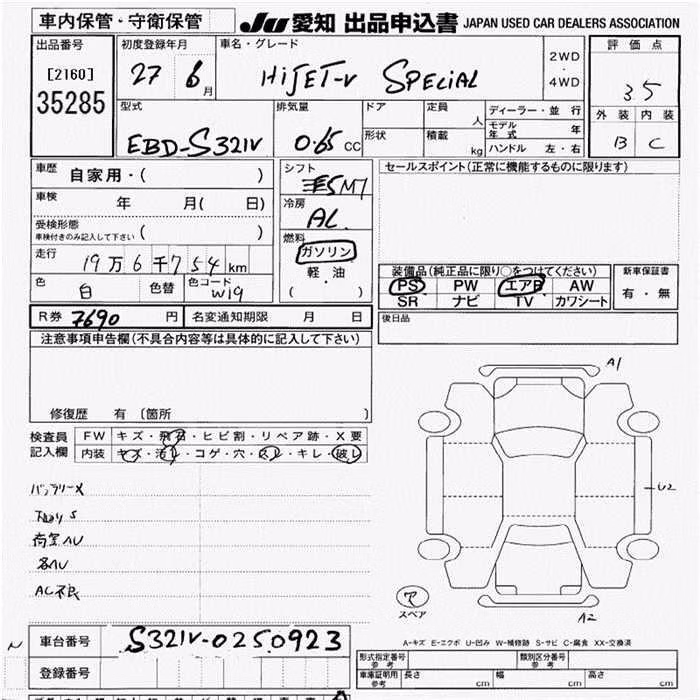 車内保管・守衛保管 JU 愛知 出品申込書 JAPAN USED CAR DEALERS ASSOCIATION
出品番号 初度登録年月 車名・グレード 2WD・4WD 評価点
[2160] 27 6月 HIJET-V SPECIAL 3.5
35285 型式 排気量 ドア 定員 人 ディーラー・並行 外装 内装
EBD-S321V 0.65 CC 形状 積載 kg モデル年式 年 B C
ハンドル 左・右
車歴 自家用・( ) シフト 5M7 セールスポイント(正常に機能するものに限ります)
車検 年 月( 日) 冷房 AC
受検形態 ( )
車検付きのみ記入して下さい
燃料 ガソリン
走行 19万6千754km 軽・油
( )
装備品(純正品に限り○をつけてください) 新車保証書
色 白 色替 色コード W19 PS PW エアB AW 有・無
SR ナビ TV カワシート
R券 7690 円 名変通知期限 月 日 後日品
注意事項申告欄(不具合内容等は具体的に記入して下さい)
修復歴 有 (箇所 )
検査員記入欄 FW キズ・飛石・ヒビ割・リペア跡・X要
内装 キズ・汚レ・コゲ・穴・スレ・キレ・破レ
バッテリーX
下廻りS
荷室AU
各AU
AC不良
A1
U2
A2
ア
スペア
A-キズ E-エクボ U-凹み W-補修跡 S-サビ C-腐食 XX-交換済
車台番号 S321V-0250923
登録番号
形式指定番号 参考 類別区分番号 参考
車庫証明用 参考 長さ cm 幅 cm 高さ cm